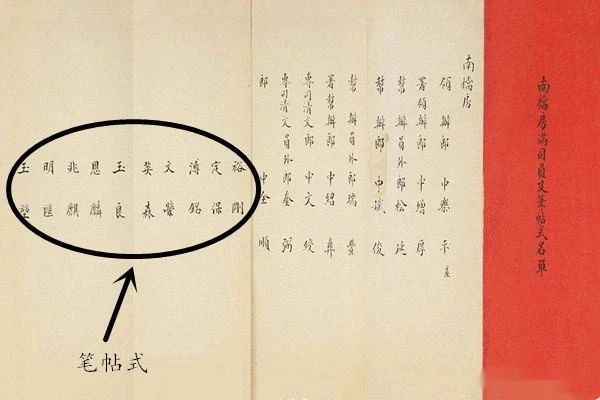 南檔房滿司員及筆帖式名單
南檔房
領辦郎中樂平 差
署領辦郎中增厚
幫辦員外郎松廷
幫辦郎中誠俊
幫辦員外郎瑞豐
署幫辦郎中紹彝
專司清文郎中文綬
專司清文員外郎奎弼
郎中全順
裕剛
定保
溥銘
文榮
英森
玉良
恩麟
兆麒
明匯
玉堃
笔帖式